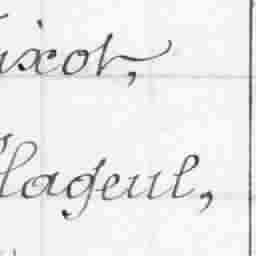 ixot,
lageul,